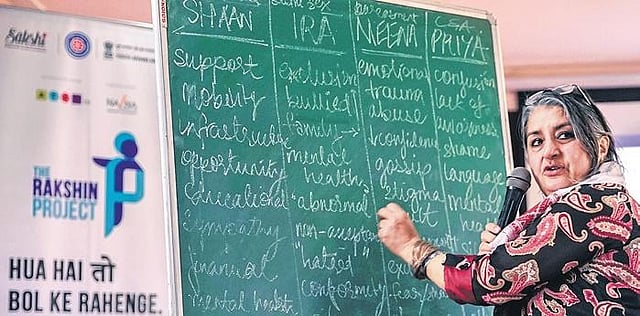 Sakshi
THE
RAKSHIN
PROJECT
HUA HAI तो
BOL KE RAHENGE.
SHAAN
support
mobility
infrastructure
opportunity
educational
sympathy
financial
mental health
same sex
IRA
exclusion
bullied
family →
mental
health
"abnormal"
non-acceptance
"hatred"
conformity
harassment
MEENA
emotional
trauma
abuse
confidence
gossip
stigma
CSA
PRIYA
confusion
lack of
awareness
shame
language
mental